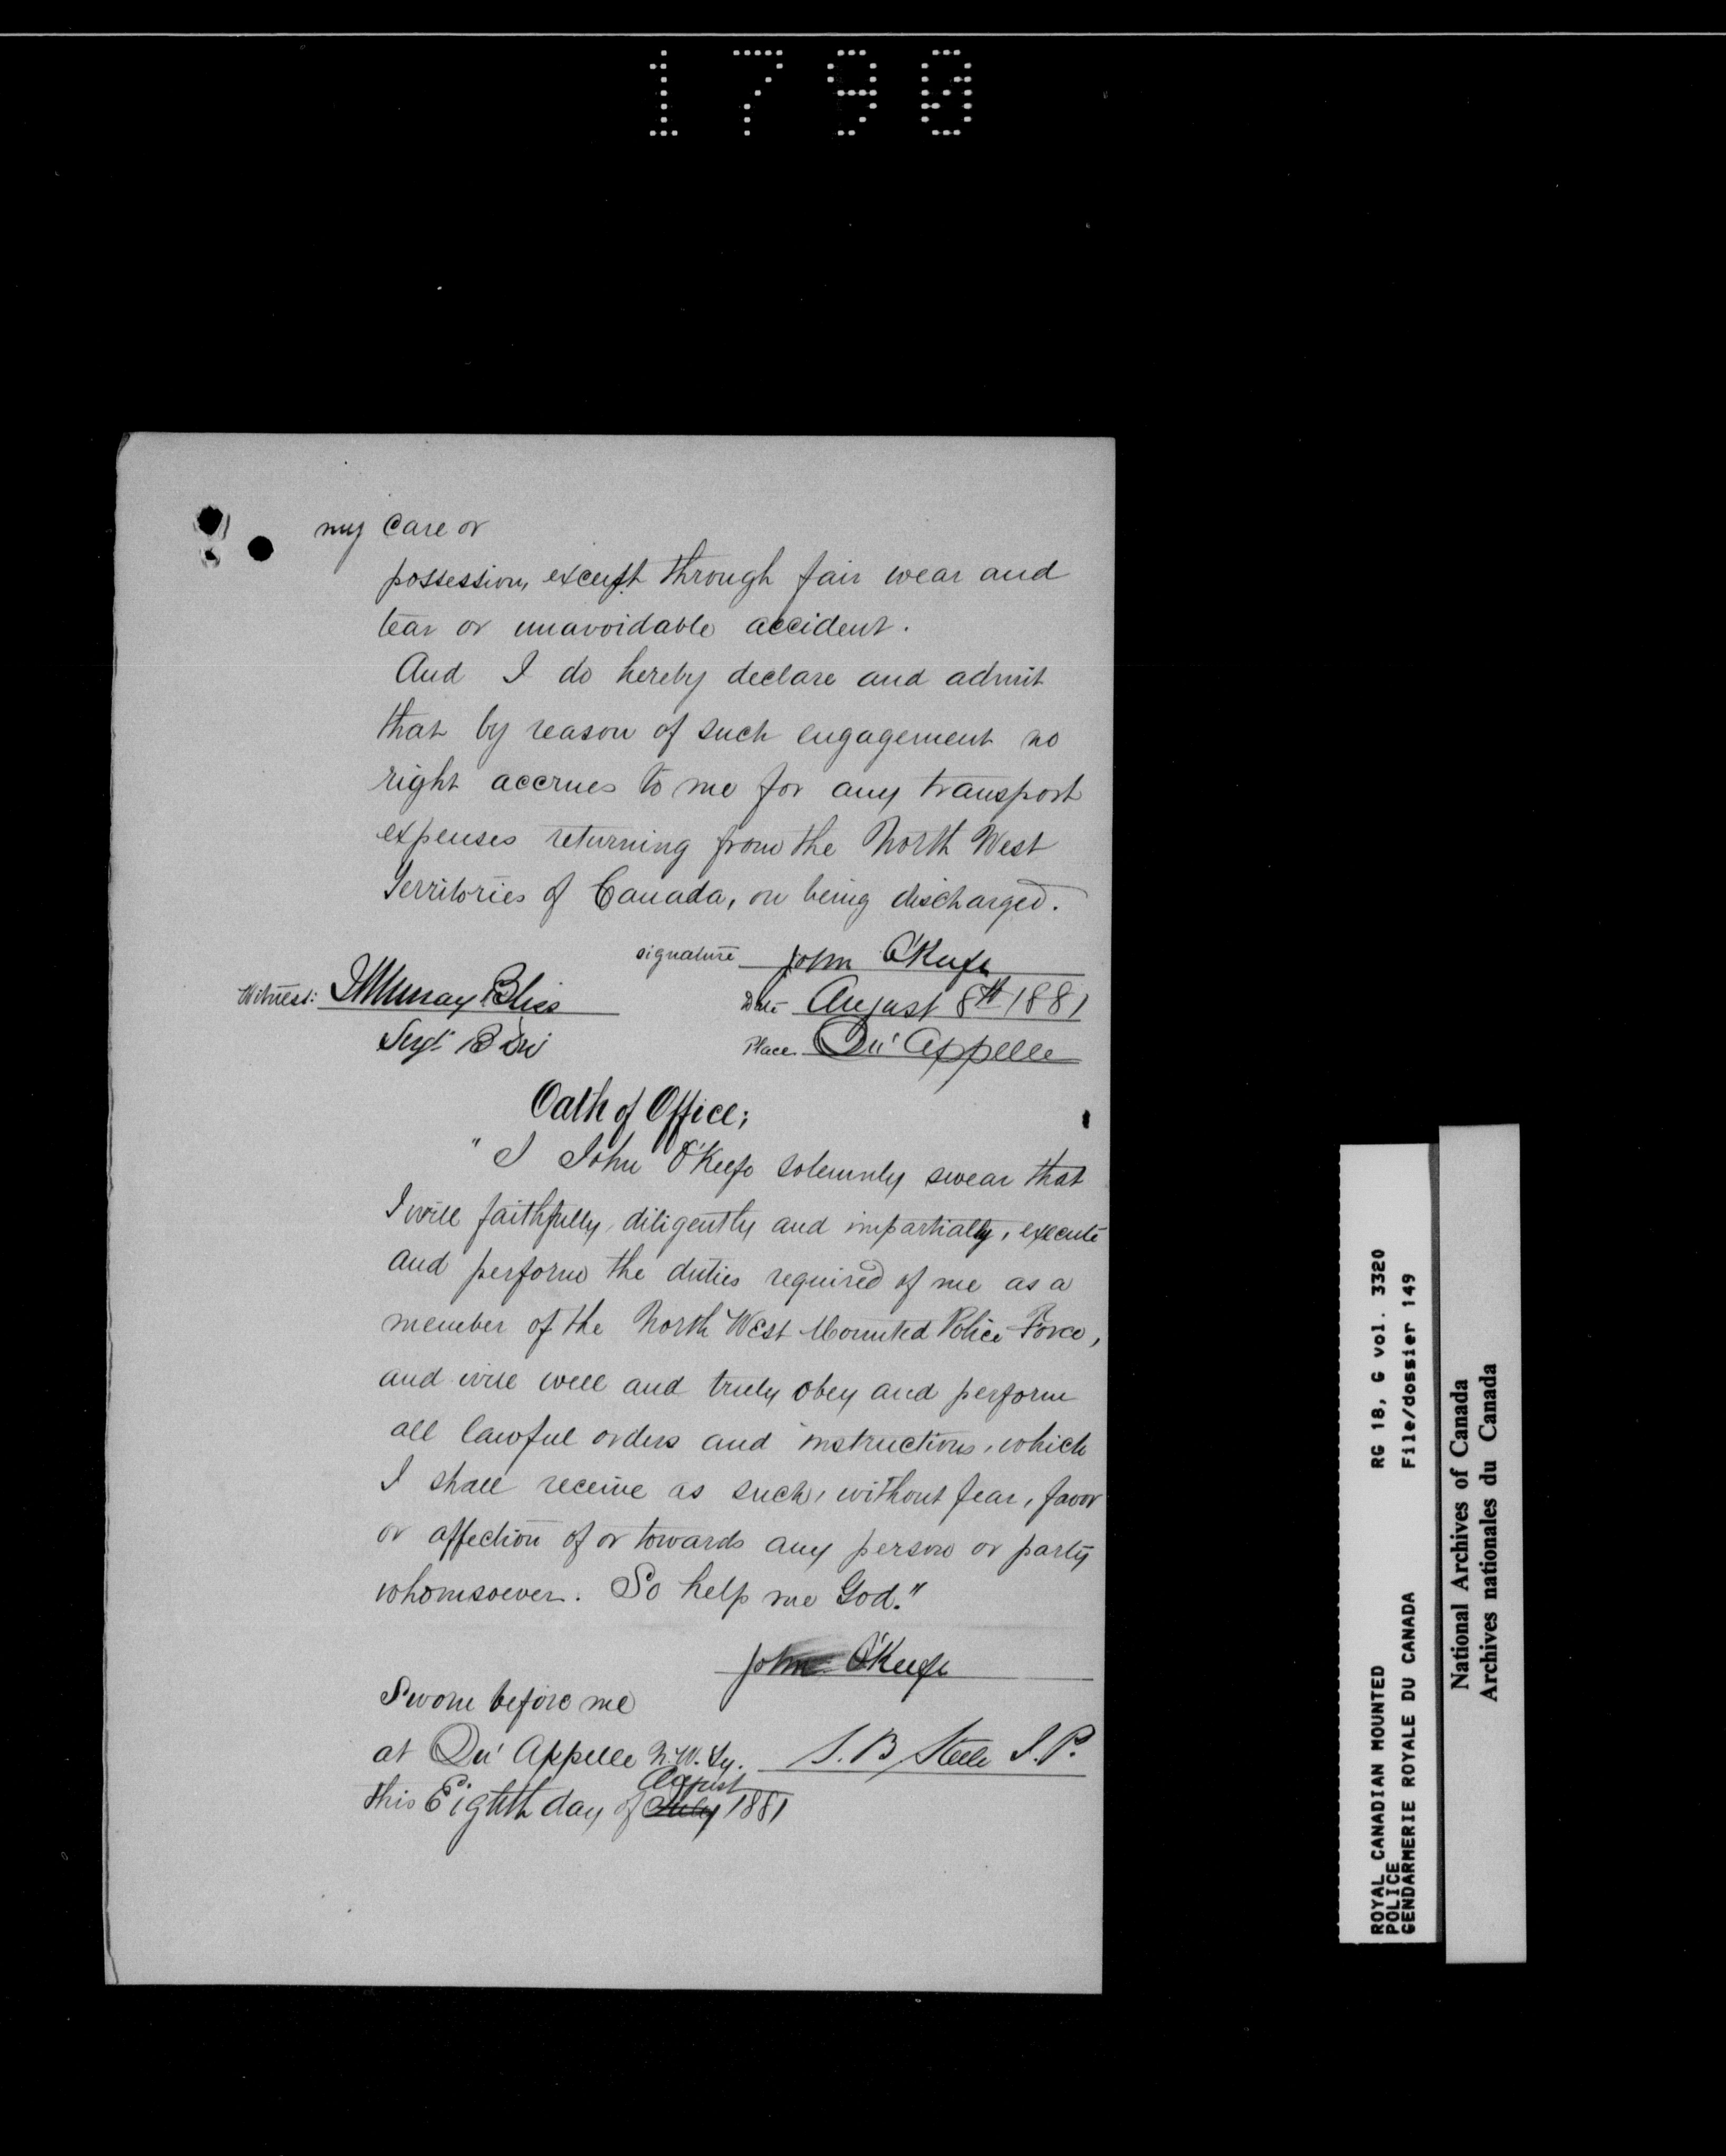 1790
my care or
possession, except through fair wear and
tear or unavoidable accident.
And I do hereby declare and admit
that by reason of such engagement no
right accrues to me for any transport
expenses returning from the North West
Territories of Canada, on being discharged.
signature John O'Keefe
Witness: Murray Bliss
Date August 8th 1881
Sergt. B Div
Place. Qu'Appelle
Oath of Office;
"I John O'Keefe solemnly swear that
I will faithfully, diligently and impartially, execute
and perform the duties required of me as a
member of the North West Mounted Police Force,
and will well and truly obey and perform
all lawful orders and instructions, which
I shall receive as such, without fear, favor
or affection of or towards any person or party
whomsoever. So help me God."
John O'Keefe
Sworn before me
at Qu'Appelle N.W.Ty. S. B Steele J.P.
August
this Eighth day of July 1881
ROYAL CANADIAN MOUNTED
POLICE
GENDARMERIE ROYALE DU CANADA
RG 18, G vol. 3320
File/dossier 149
National Archives of Canada
Archives nationales du Canada